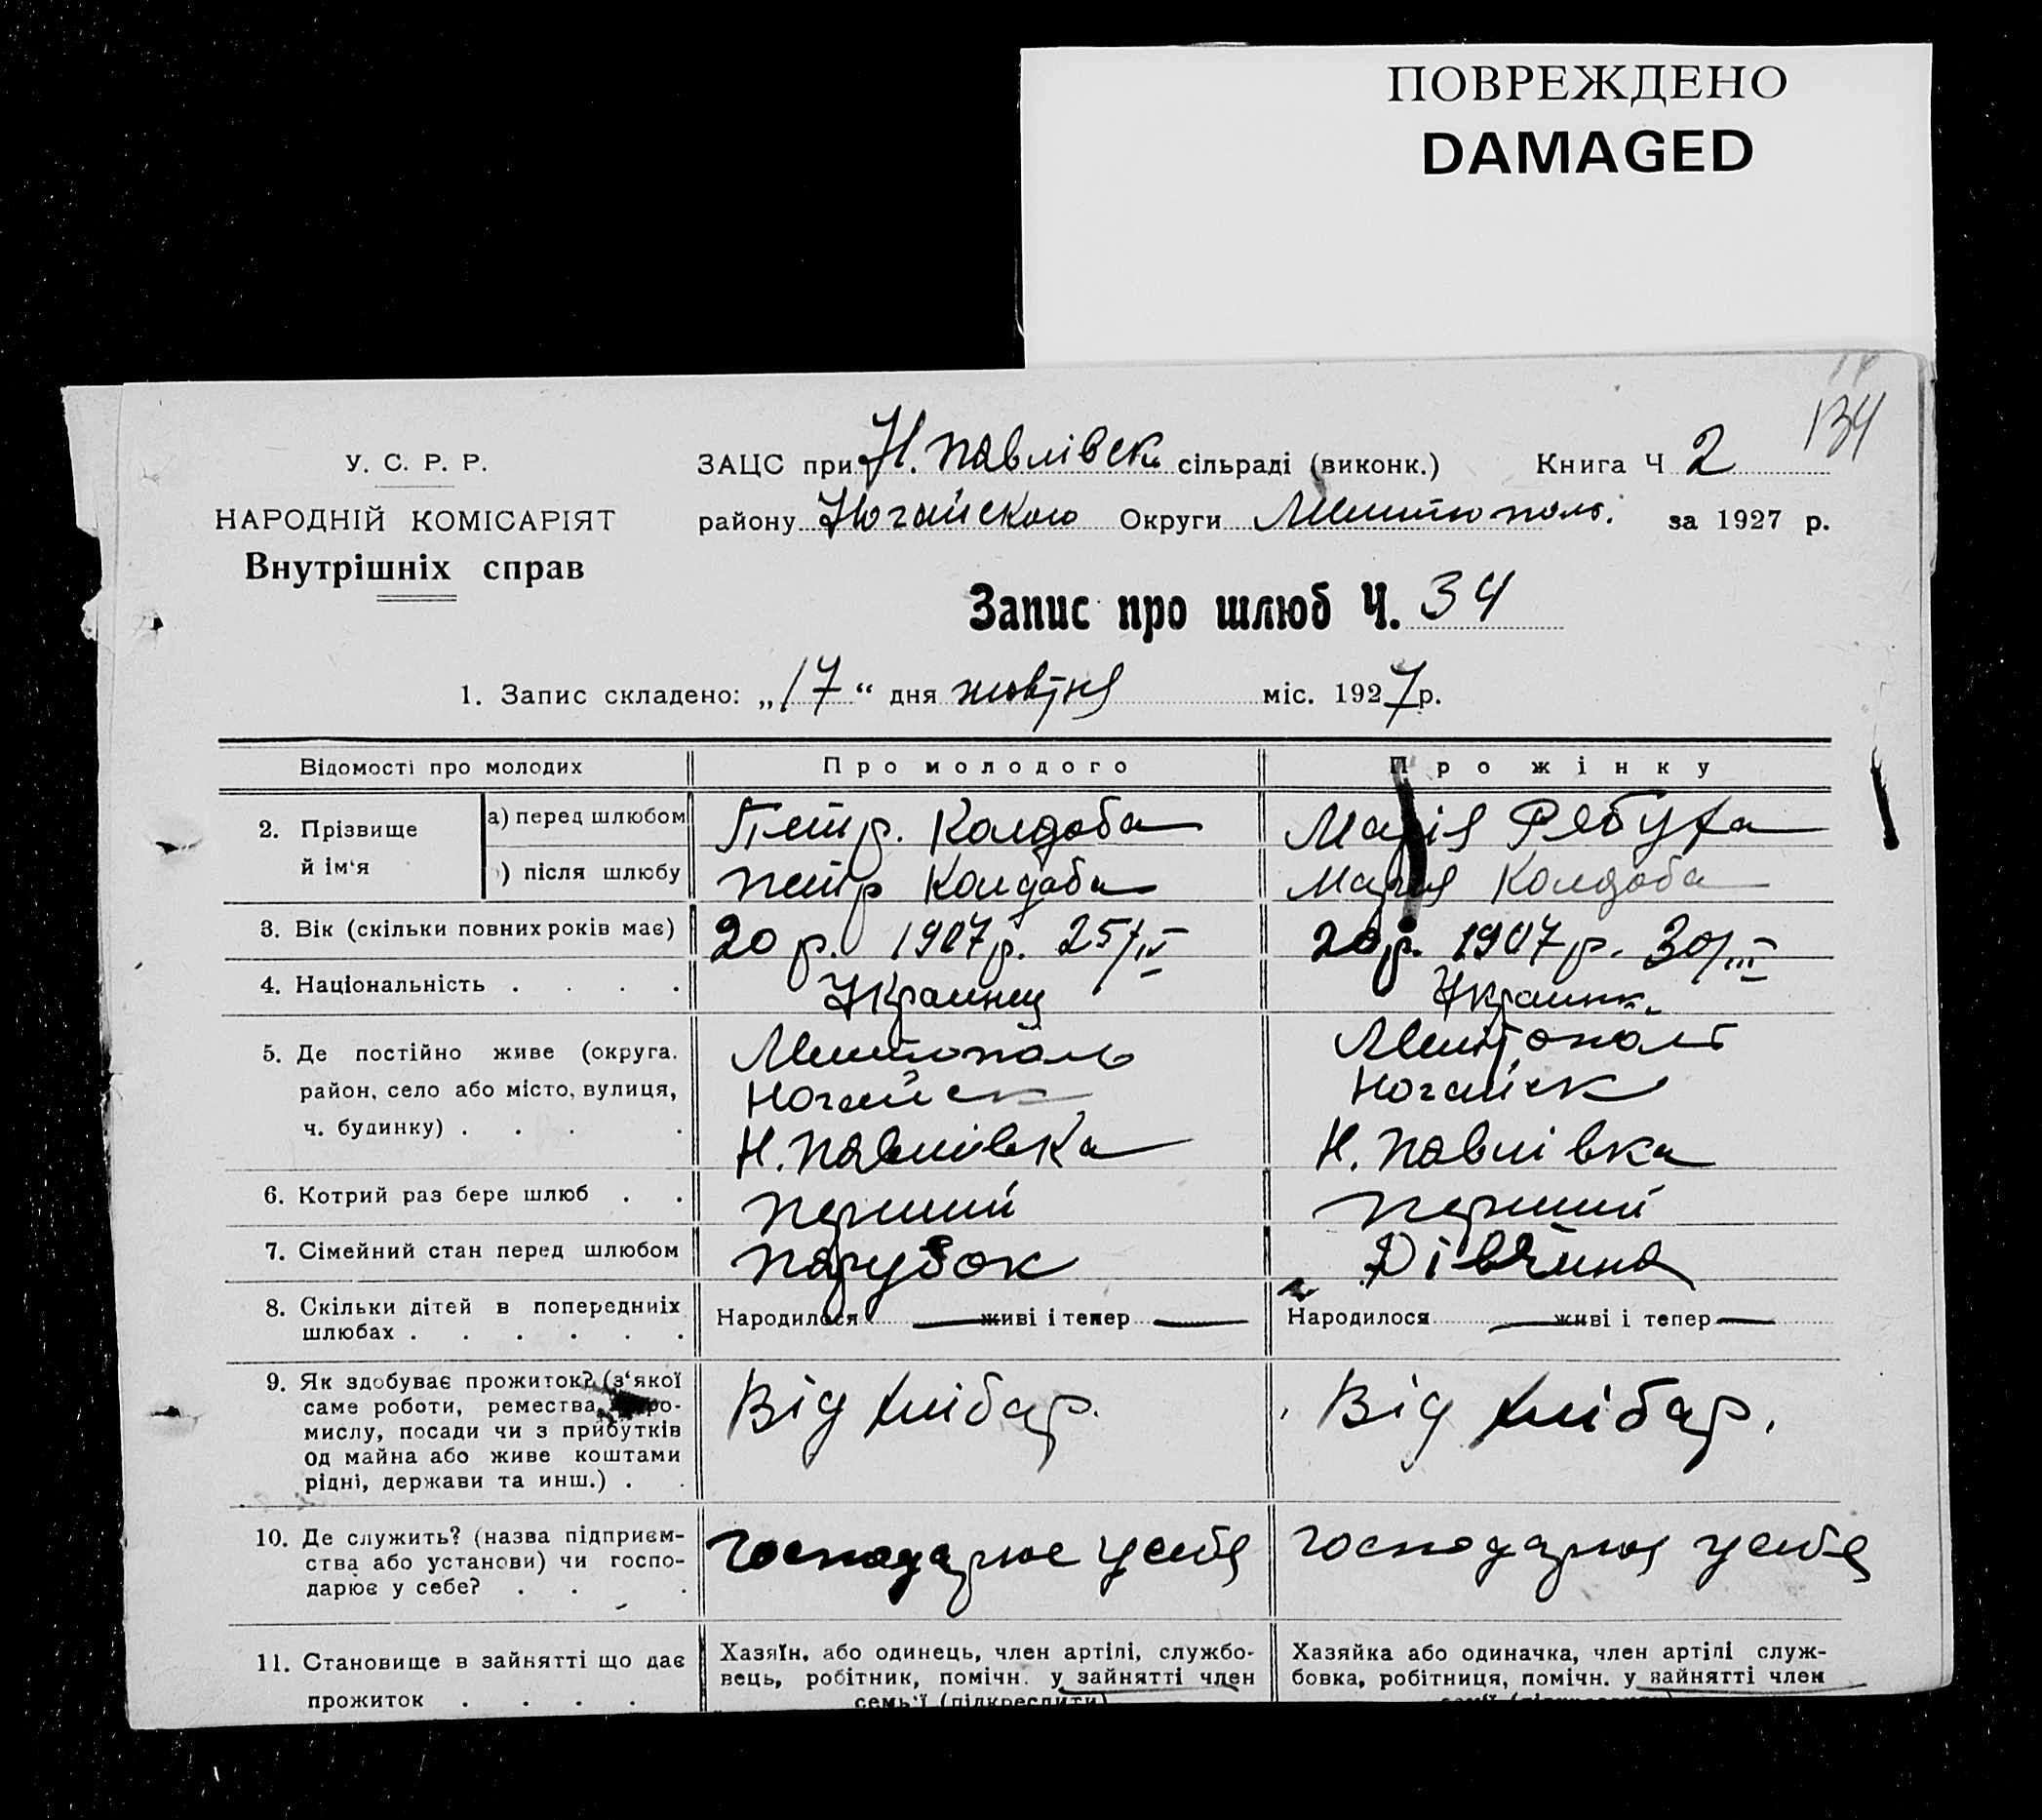 ПОВРЕЖДЕНО
DAMAGED
134
У. С. Р. Р.
НАРОДНІЙ КОМІСАРІЯТ
Внутрішніх справ
ЗАЦС при Н. Павлівск. сільраді (виконк.) Книга Ч 2
району Ногайского Округи Мелитополь. за 1927 р.
Запис про шлюб Ч. 34
1. Запис складено: „17“ дня жовтня міс. 1927 р.
Відомості про молодих Про молодого Про жінку
2. Прізвище й ім‘я
а) перед шлюбом Петр. Колдоба Марія Рябуха
) після шлюбу Петр Колдоба Марія Колдоба
3. Вік (скільки повних років має) 20 р. 1907 р. 25/IV 20 р. 1907 р. 30/III
4. Національність . . . . Украинец Украинк.
5. Де постійно живе (округа. район, село або місто, вулиця, ч. будинку) . . . .
Мелитополь Мелитополь
Ногайск Ногайск
Н. Павлівка Н. Павлівка
6. Котрий раз бере шлюб . . перший перший
7. Сімейний стан перед шлюбом парубок Дівчина
8. Скільки дітей в попередниіх Народилося — живі і тепер — Народилося — живі і тепер —
шлюбах . . . . . .
9. Як здобуває прожиток? (з‘якої
саме роботи, ремества, про-
мислу, посади чи з прибутків
од майна або живе коштами
рідні, держави та инш.) . .
Від хлібар. Від хлібар.
10. Де служить? (назва підприєм-
ства або установи) чи госпо-
дарює у себе? . . .
Господарює у себе господарює у себе
11. Становище в зайнятті що дає
прожиток . . . .
Хазяїн, або одинець, член артілі, службо-
вець, робітник, помічн. у зайнятті член
семь‘ї (підкреслити)
Хазяйка або одиначка, член артілі служ-
бовка, робітниця, помічн. у зайнятті член